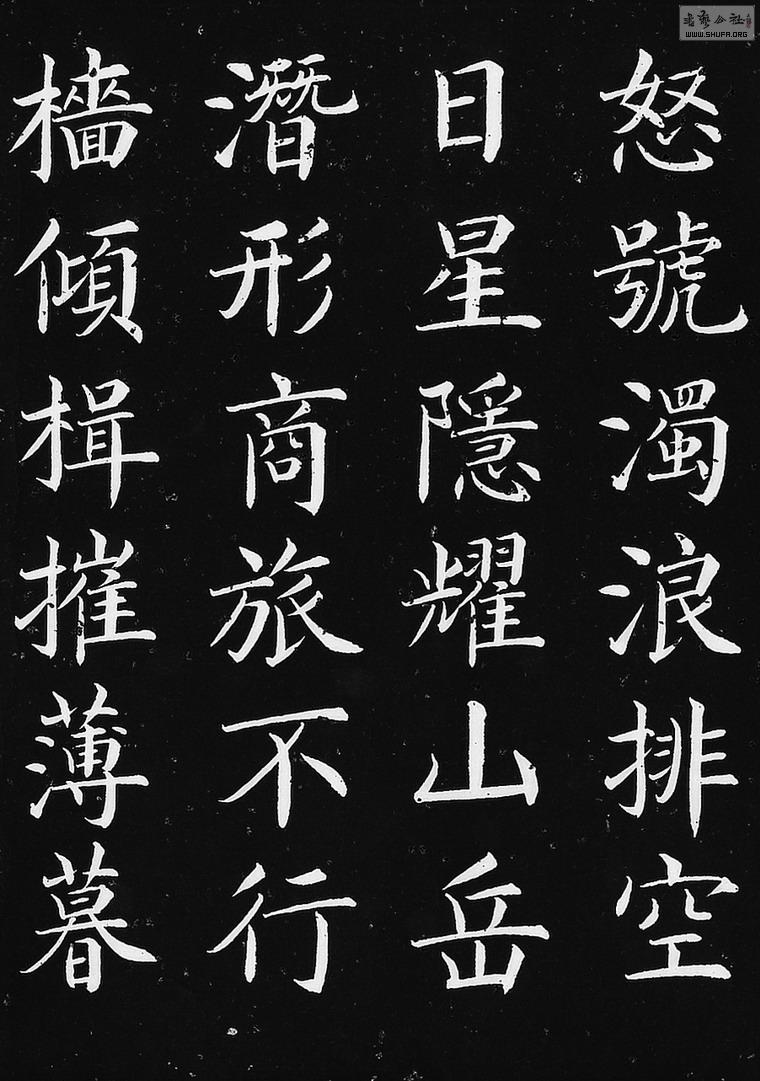 怒號濁浪排空
日星隱耀山岳
潛形商旅不行
檣傾楫摧薄暮
WWW.SHUFA.ORG